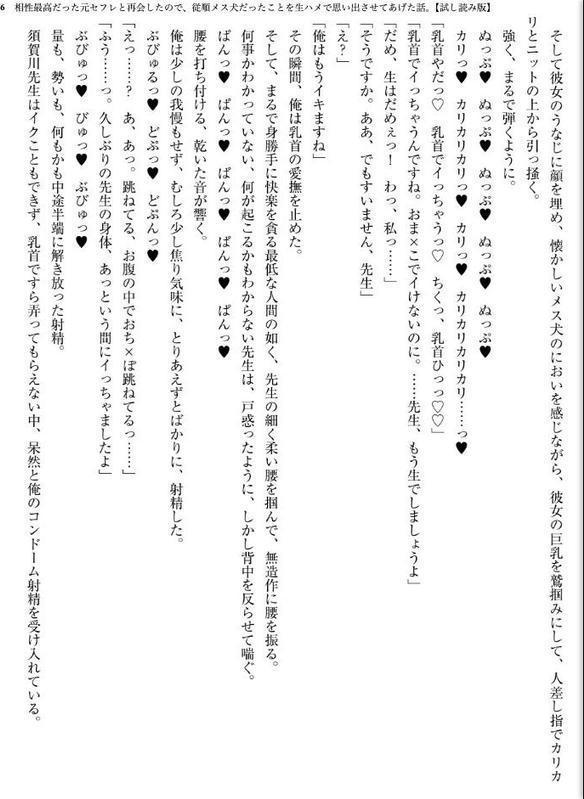 6 相性最高だった元セフレと再会したので、従順メス犬だったことを生ハメで思い出させてあげた話。【試し読み版】
そして彼女のうなじに顔を埋め、懐かしいメス犬のにおいを感じながら、彼女の巨乳を鷲掴みにして、人差し指でカリカ
リとニットの上から引っ掻く。
強く、まるで弾くように。
ぬっぷ♥ ぬっぷ♥ ぬっぷ♥ ぬっぷ♥ ぬっぷ♥
カリっ♥ カリカリカリっ♥ カリっ♥ カリカリカリカリ……っ♥
「乳首やだっ♡ 乳首でイっちゃうっ♡ ちくっ、乳首ひっっ♡♡」
「乳首でイっちゃうんですね。おま×こでイけないのに。……先生、もう生でしましょうよ」
「だめ、生はだめぇっ! わっ、私っ……」
「そうですか。ああ、でもすいません、先生」
「え?」
「俺はもうイキますね」
その瞬間、俺は乳首の愛撫を止めた。
そして、まるで身勝手に快楽を貪る最低な人間の如く、先生の細く柔い腰を掴んで、無造作に腰を振る。
何事かわかっていない、何が起こるかもわからない先生は、戸惑ったように、しかし背中を反らせて喘ぐ。
ぱんっ♥ ぱんっ♥ ぱんっ♥ ぱんっ♥ ぱんっ♥
腰を打ち付ける、乾いた音が響く。
俺は少しの我慢もせず、むしろ少し焦り気味に、とりあえずとばかりに、射精した。
ぶびゅるっ♥ どぷっ♥ どぷんっ♥
「えっ……? あ、あっ。跳ねてる、お腹の中でおち×ぽ跳ねてるっ……」
「ふう……っ。久しぶりの先生の身体、あっという間にイっちゃましたよ」
ぶびゅっ♥ びゅっ♥ ぶびゅっ♥
量も、勢いも、何もかも中途半端に解き放った射精。
須賀川先生はイクこともできず、乳首ですら弄ってもらえない中、呆然と俺のコンドーム射精を受け入れている。